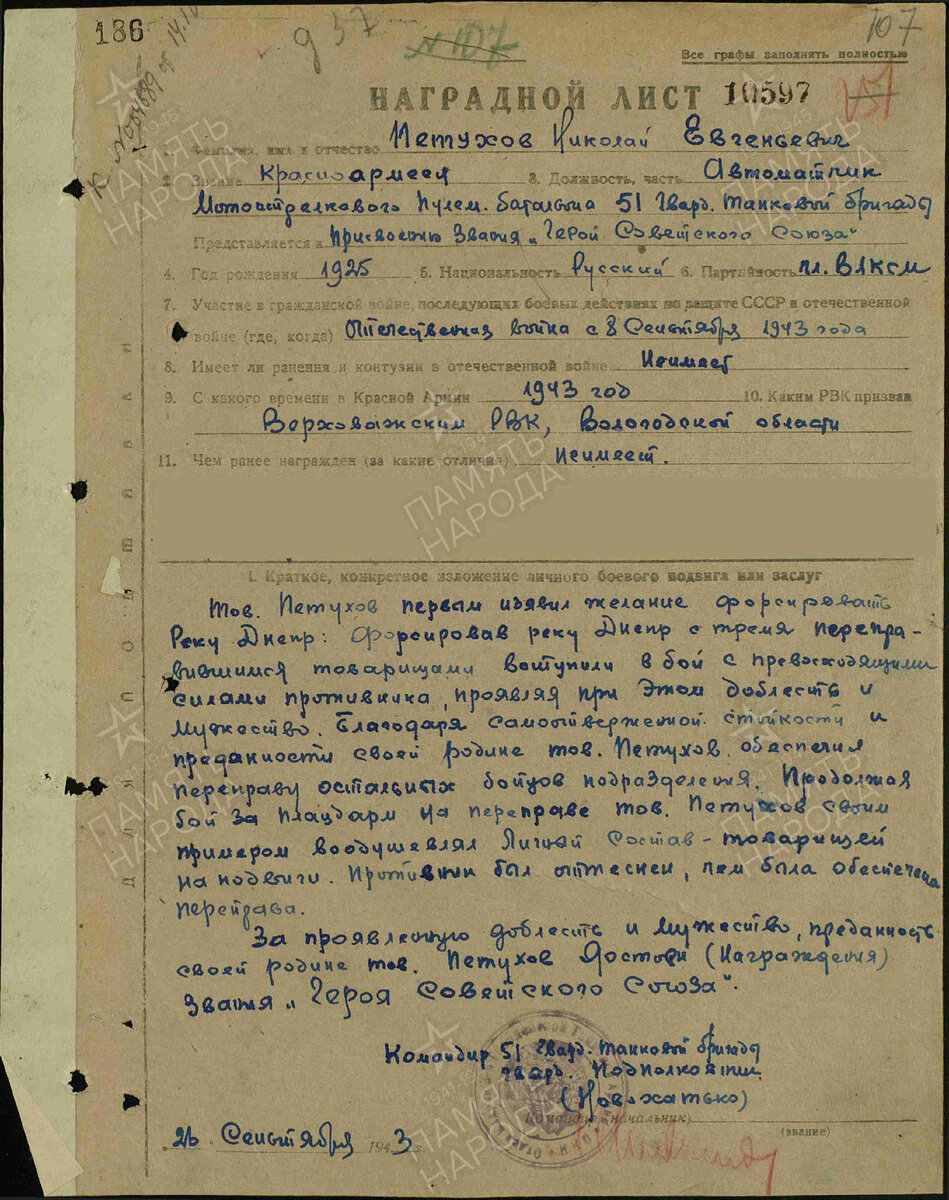 186
937
N 107
107
К №084689 от 14.10
Все графы заполнять полностью
НАГРАДНОЙ ЛИСТ 10597
1. Фамилия, имя и отчество Петухов Николай Евгеньевич
2. Звание Красноармеец 3. Должность, часть Автоматчик
Мотострелкового Пулем. батальона 51 Гвард. танковой бригады
Представляется к Присвоению Звания „Герой Советского Союза“
4. Год рождения 1925 5. Национальность Русский 6. Партийность чл. ВЛКСМ
7. Участие в гражданской войне, последующих боевых действиях по защите СССР и отечественной
войне (где, когда) Отечественная война с 8 Сентября 1943 года
8. Имеет ли ранения и контузии в отечественной войне Неимеет
9. С какого времени в Красной Армии 1943 год 10. Каким РВК призван
Верховажским РВК, Вологодской области
11. Чем ранее награжден (за какие отличия) Неимеет.
1. Краткое, конкретное изложение личного боевого подвига или заслуг
Тов. Петухов первым изявил желание форсировать
Реку Днепр: Форсировав реку Днепр с тремя перепра-
вившимся товарищами воступили в бой с превосходящими
силами противника, проявляя при этом доблесть и
Мужество. Благодаря самоотверженной стойкости и
преданности своей родине тов. Петухов обеспечил
переправу остальных бойцов подразделения. Продолжая
бой за плацдарм на переправе тов. Петухов своим
примером воодушевлял Личный Состав - товарищей
на подвиги. Противник был оттеснен, чем была обеспечена
переправа.
За проявленную доблесть и мужество, преданность
своей родине тов. Петухов Достоин (Награждения)
Звания „Героя Советского Союза“.
Командир 51 Гвард. танковой бригады
гвард. Подполковник
(Новохатько)
Командир (начальник)
(звание)
26 Сентября 1943 г.
Для подшивки
ПАМЯТЬ НАРОДА